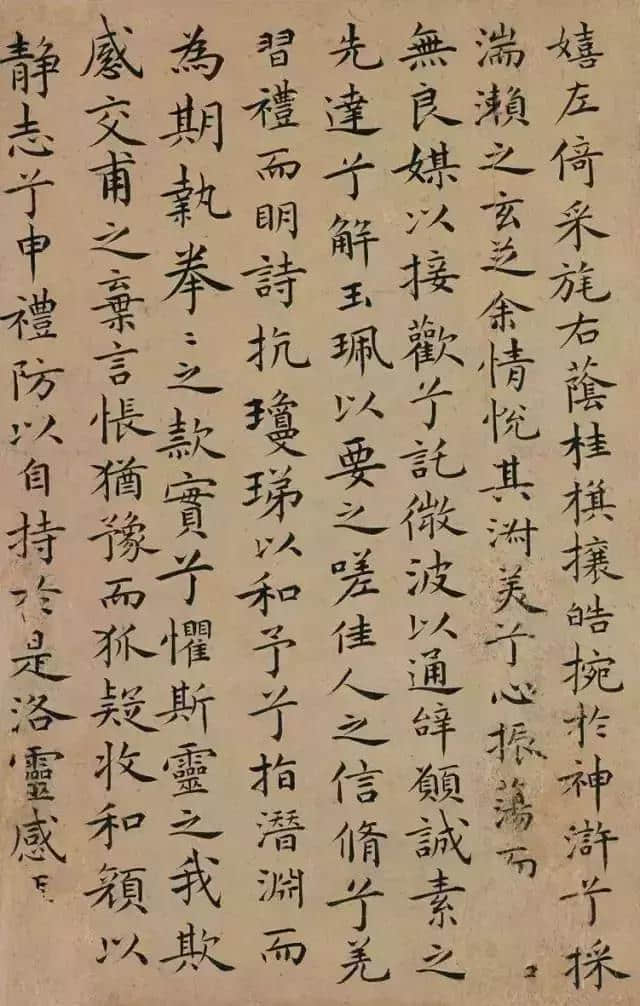 嬉左倚采旄右蔭桂旗攘皓捥於神滸兮採
湍瀨之玄芝余情悅其淑美兮心振蕩而
無良媒以接歡兮託微波以通辝願誠素之
先達兮解玉珮以要之嗟佳人之信脩兮羌
習禮而眀詩抗瓊珶以和予兮指潛淵而
為期執拳〻之款實兮懼斯靈之我欺
感交甫之棄言悵猶豫而狐疑收和顏以
静志兮申禮防以自持於是洛靈感